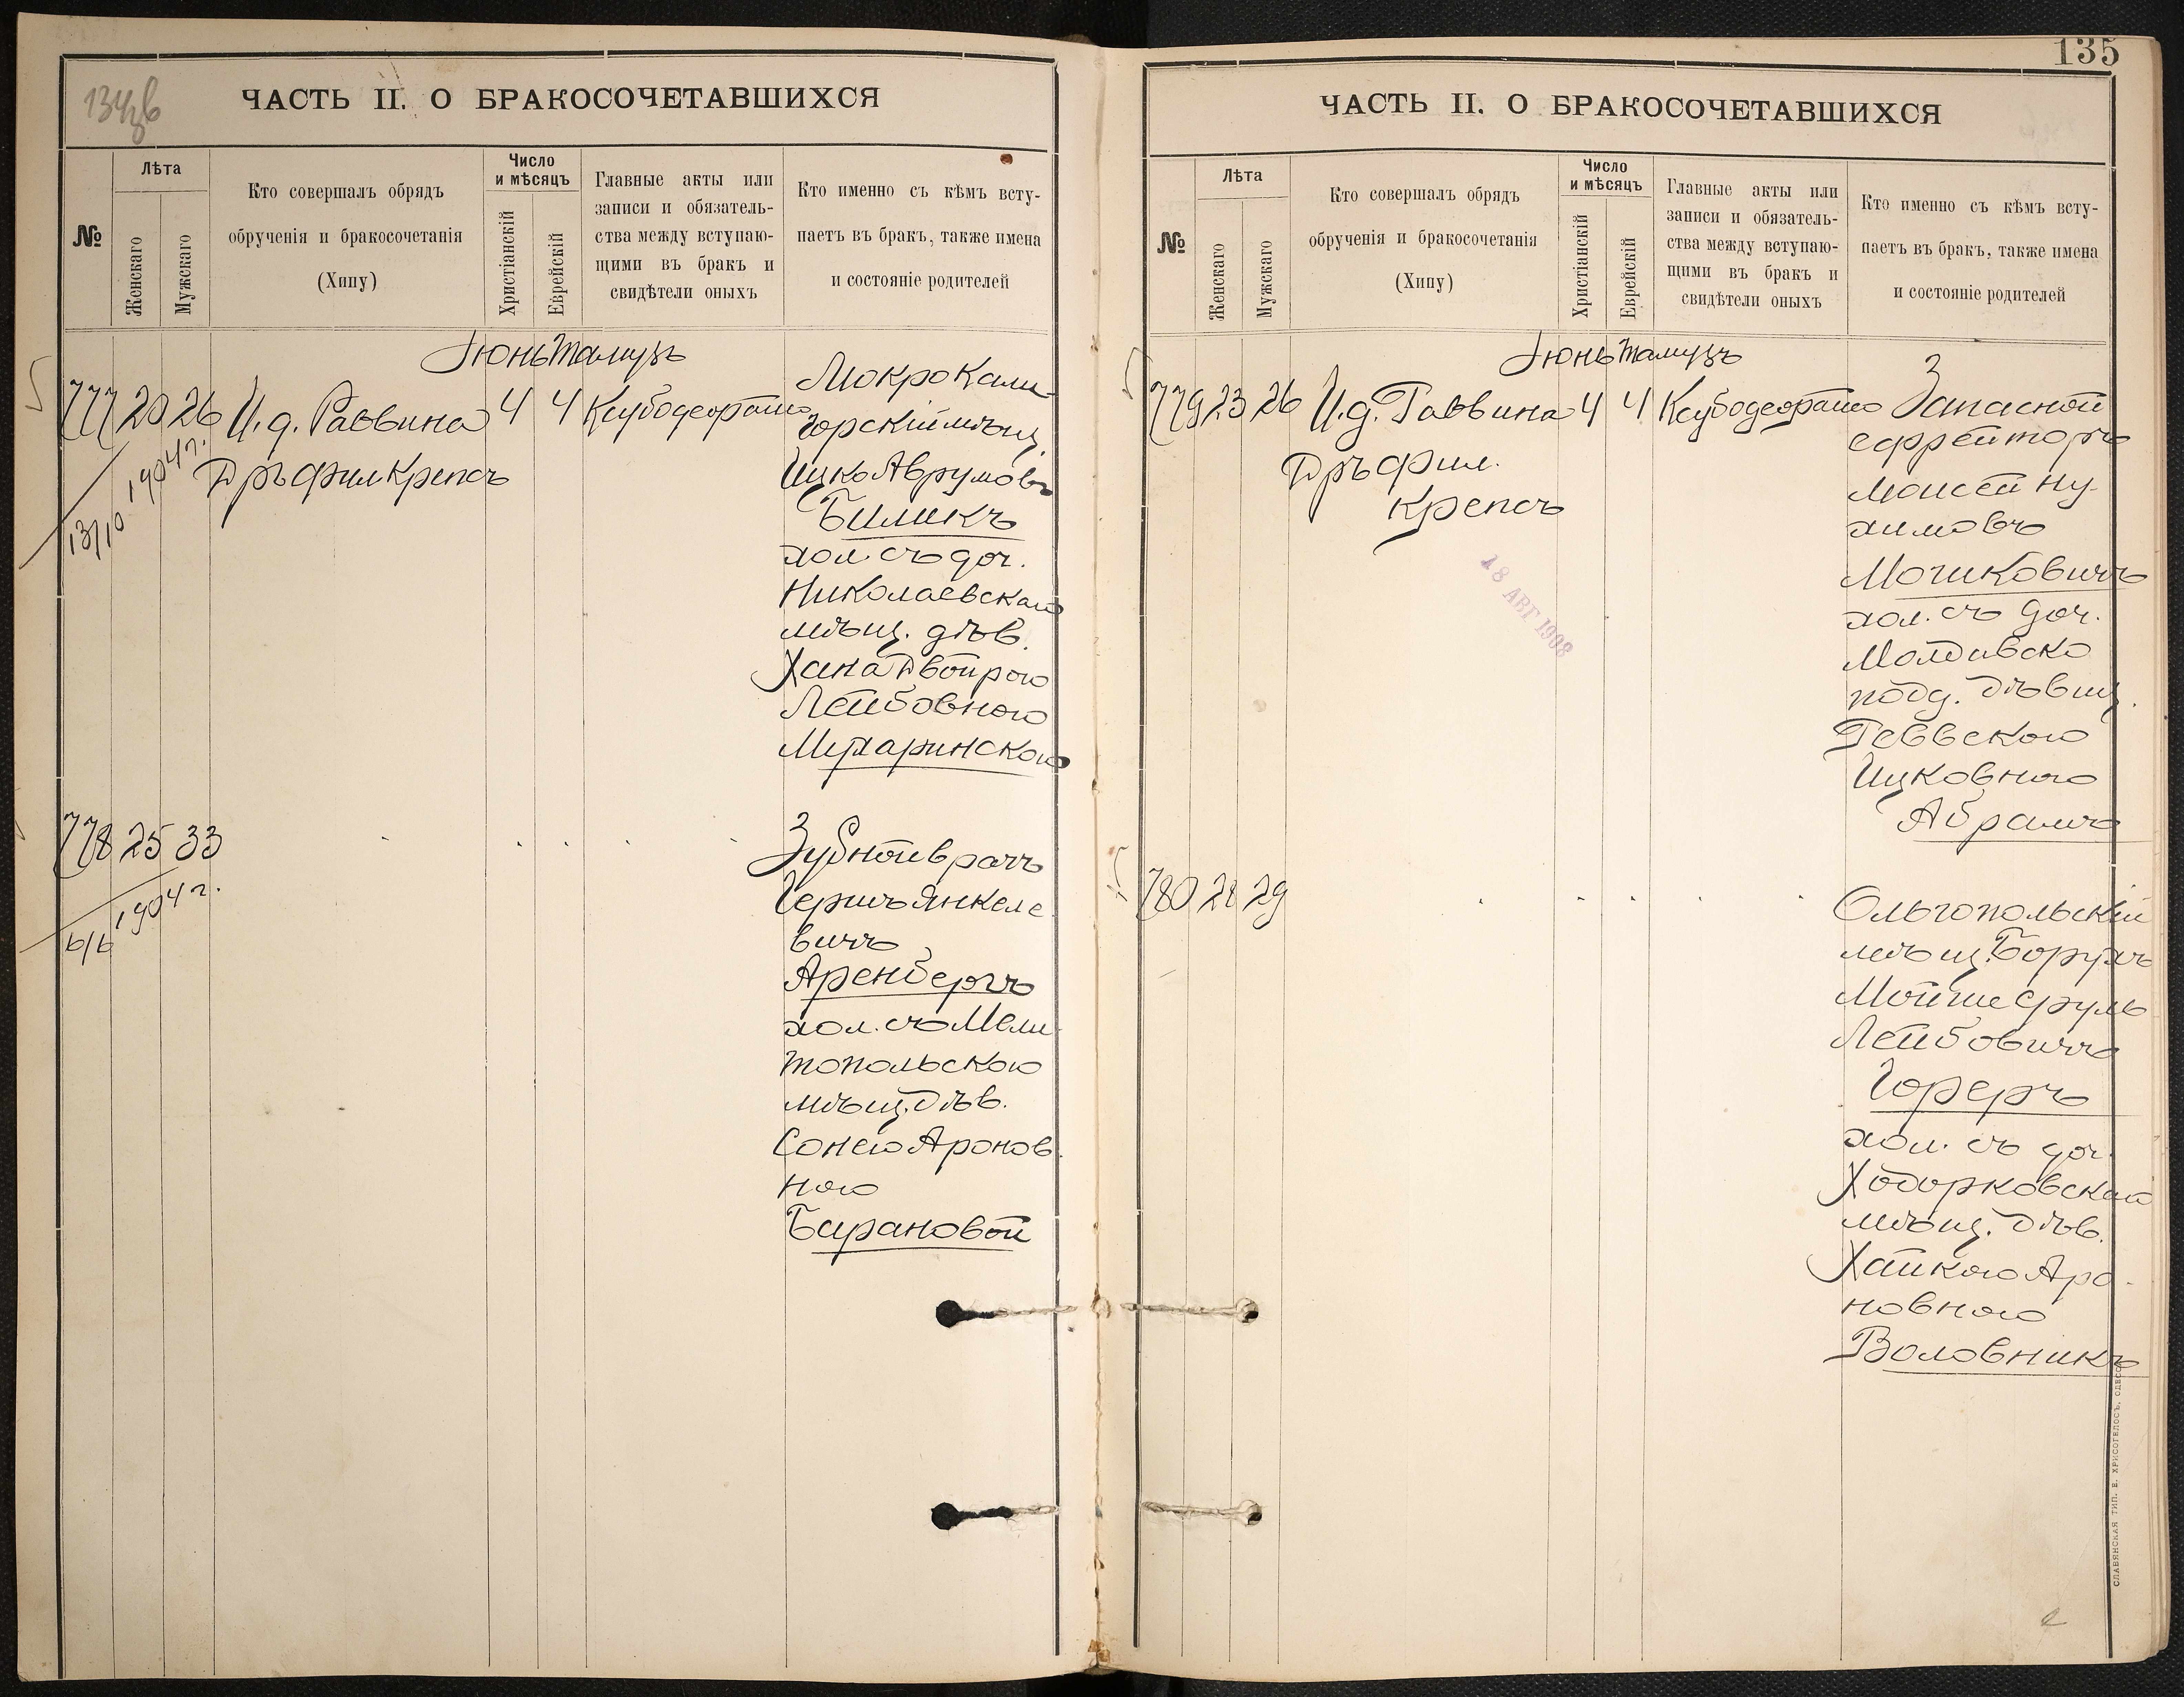 134об
ЧАСТЬ II. О БРАКОСОЧЕТАВШИХСЯ
№
Лѣта
Женскаго
Мужскаго
Кто совершалъ обрядъ
обрученія и бракосочетанія
(Хипу)
Число
и мѣсяцъ
Христіанскій
Еврейскій
Главные акты или
записи и обязатель-
ства между вступаю-
щими въ бракъ и
свидѣтели оныхъ
Кто именно съ кѣмъ всту-
паетъ въ бракъ, также имена
и состояніе родителей
Іюнь Тамузъ
777 20 26 И. д. Раввина 4 4
Дръ фил Крепсъ
13/10 1904 г.
Мокро Кали-
горскій мѣщ.
Ицко Аврумовъ
Биликъ
хол. съ доч.
Николаевскаго
мѣщ. дѣв.
Хана Двойрою
Лейбовною
778 25 33
6/6 1904 г.
Зубной врачъ
Гершъ Янкеле
вичъ
Аренбергъ
хол. съ Мели
топольскою
мѣщ. дѣв.
Сонею Аронов
ною
Барановой
135
ЧАСТЬ II. О БРАКОСОЧЕТАВШИХСЯ
№
Лѣта
Женскаго
Мужскаго
Кто совершалъ обрядъ
обрученія и бракосочетанія
(Хипу)
Число
и мѣсяцъ
Христіанскій
Еврейскій
Главные акты или
записи и обязатель-
ства между вступаю-
щими въ бракъ и
свидѣтели оныхъ
Кто именно съ кѣмъ всту-
паетъ въ бракъ, также имена
и состояніе родителей
Іюнь Тамузъ
779 23 26 И. д. Раввина 4 4
Дръ фил.
Крепсъ
18 АВГ 1908
Запасной
ефрейторъ
Моисей Ну-
химовъ
Мочиковичъ
хол. съ доч.
Молдавско
подд. дѣвиц.
Реввекою
Ицковною
Абрамъ
780 21 29
Ольгопольскій
мѣщ. Борухъ
Мойше Сруль
Лейбовичъ
Гореръ
хол. съ доч.
Ходорковскаго
мѣщ. дѣв.
Хайкою Аро-
новною
Воловникъ
СЛАВЯНСКАЯ ТИП. Е. ХРИСОГЕЛОСЪ, ОДЕССА